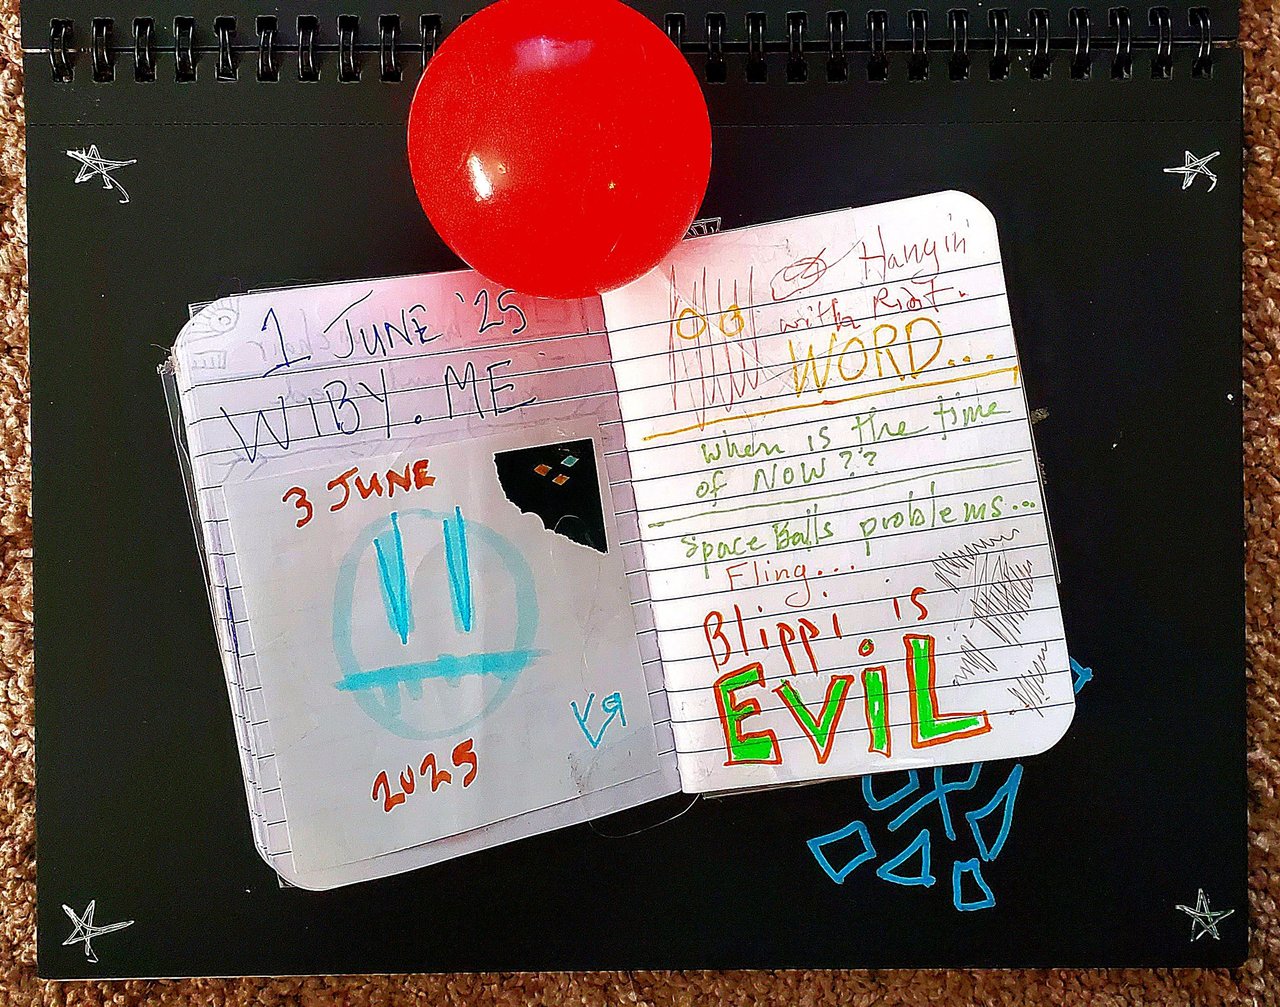 1 JUNE '25
WIBY.ME
3 JUNE
2025
Hangin'
with Riot.
WORD...
When is the time
of NOW??
Space Balls problems...
Fling...
Blippi is
EViL